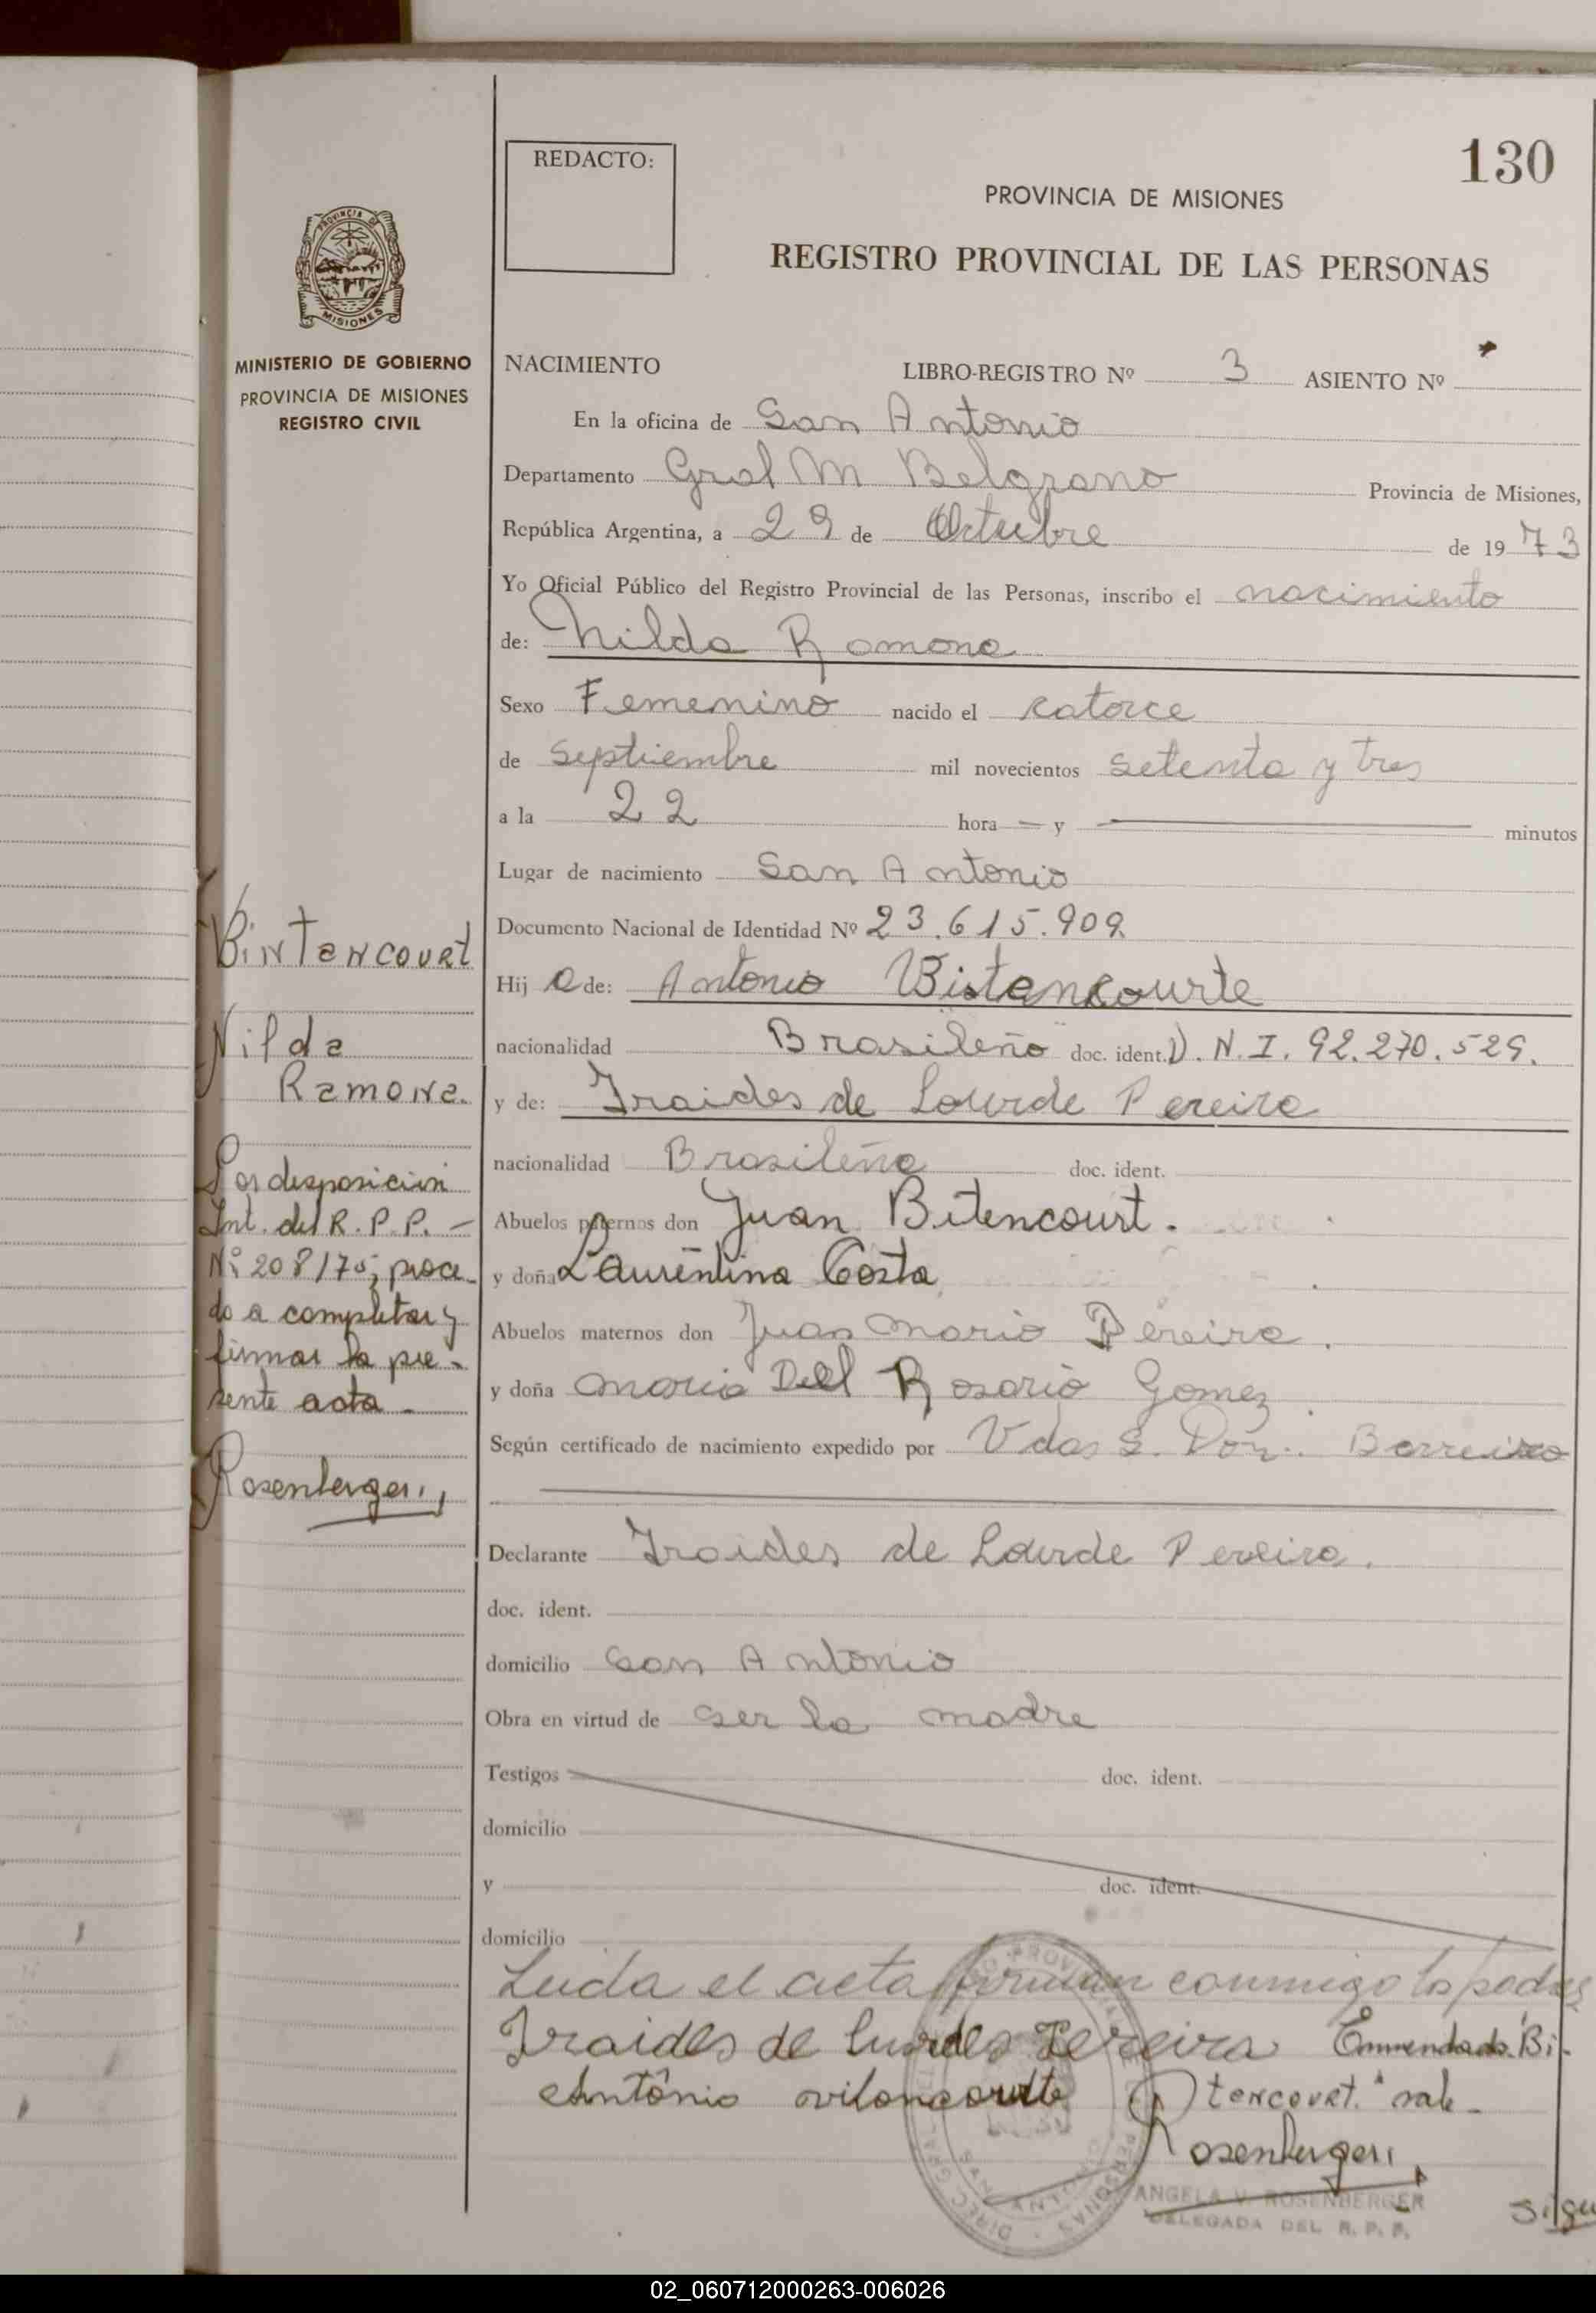 130
REDACTO:
PROVINCIA DE MISIONES
REGISTRO PROVINCIAL DE LAS PERSONAS
PROVINCIA DE
MISIONES
MINISTERIO DE GOBIERNO
PROVINCIA DE MISIONES
REGISTRO CIVIL
NACIMIENTO LIBRO-REGISTRO Nº 3 ASIENTO Nº
En la oficina de San Antonio
Departamento Gral M Belgrano Provincia de Misiones,
República Argentina, a 29 de Octubre de 19 73
Yo Oficial Público del Registro Provincial de las Personas, inscribo el nacimiento
de: Nilda Ramona
Sexo Femenino nacido el catorce
de septiembre mil novecientos setenta y tres
a la 22 hora — y — minutos
Lugar de nacimiento San Antonio
Documento Nacional de Identidad Nº 23.615.909
Hij a de: Antonio
nacionalidad Brasileño doc. ident. D.N.I. 92.270.529.
y de: Iraides de Lourde Pereira
nacionalidad Brasileña doc. ident.
Abuelos paternos don Juan Bitencourt.
y doña Laurentina Costa
Abuelos maternos don Juan Mario Pereira.
y doña Maria Del Rosario Gomez.
Según certificado de nacimiento expedido por Barreiro
Declarante Iraides de Lourde Pereira.
doc. ident.
domicilio San Antonio
Obra en virtud de ser la madre
Testigos doc. ident.
domicilio
y doc. ident.
domicilio
Leida el acta firman conmigo los padres
Iraides de Lurdes Pereira Enmendado "Bi-
Antônio tencourt." vale -
Rosenberger
ANGELA V. ROSENBERGER
DELEGADA DEL R. P. P.
Sigue
Bintencourt
Nilda
Ramona.
Por disposición
Int. del R. P. P. -
Nº 208/75, proce-
do a completar y
firmar la pre-
sente acta -
Rosenberger
02_060712000263-006026